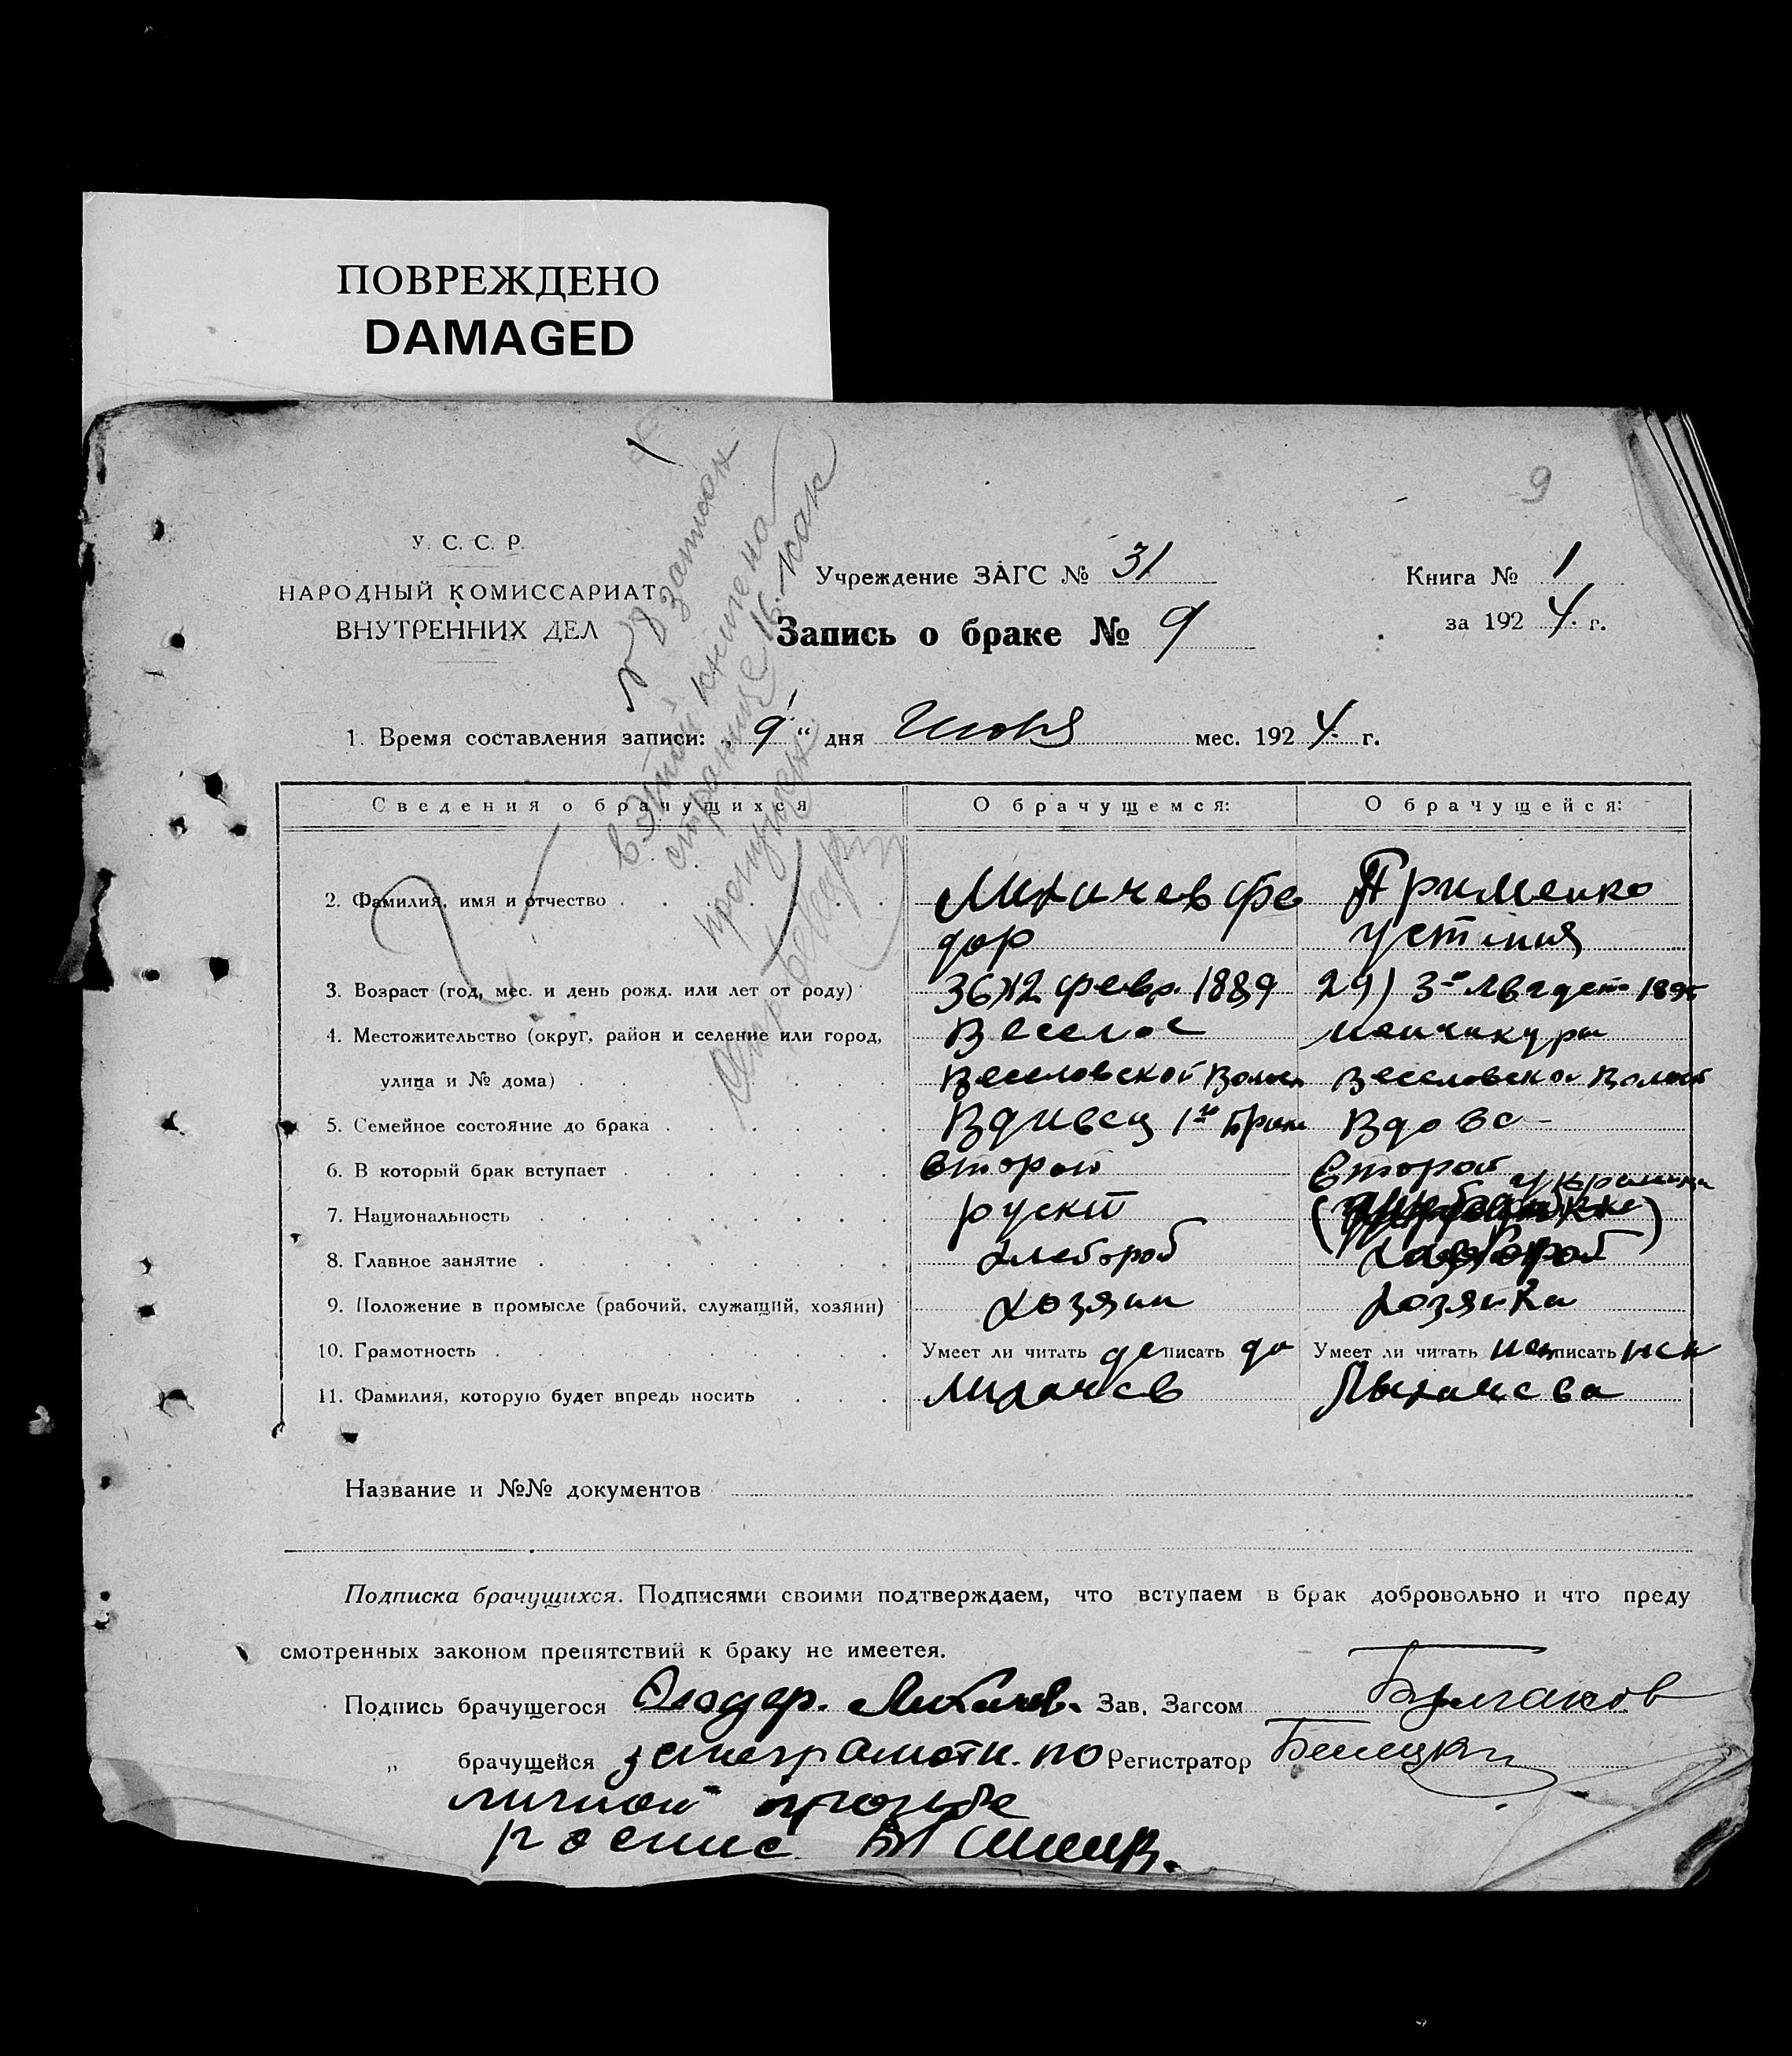 ПОВРЕЖДЕНО
DAMAGED
9
У. С. С. Р.
НАРОДНЫЙ КОМИССАРИАТ
ВНУТРЕННИХ ДЕЛ
Учреждение ЗАГС № 31
Запись о браке № 9
Книга № 1
за 1924 г.
1. Время составления записи: „9“ дня Июня мес. 1924 г.
Сведения о брачущихся
О брачущемся:
О брачущейся:
2. Фамилия, имя и отчество
Лихачев Фе
дор
Устиния
3. Возраст (год, мес. и день рожд. или лет от роду)
36) 12 февр. 1889
29) 3го Август 1895
4. Местожительство (округ, район и селение или город,
улица и № дома)
Веселое
Веселовской Волост
Менчикуры
Веселовской Волост
5. Семейное состояние до брака
Вдивец 1й брак
Вдова
6. В который брак вступает
второй
второй
7. Национальность
руский
украинка
8. Главное занятие
хлебороб
9. Положение в промысле (рабочий, служащий, хозяин)
хозяин
хозяйка
10. Грамотность
Умеет ли читать да писать да
Умеет ли читать писать
11. Фамилия, которую будет впредь носить
Лихачев
Лыхачева
Название и №№ документов
Подписка брачущихся. Подписями своими подтверждаем, что вступаем в брак добровольно и что преду
смотренных законом препятствий к браку не имеетея.
Подпись брачущегося Лихачев. Зав. Загсом Булгаков
„ брачущейся за неграмотн. по Регистратор Белецкий
личной прозьбе